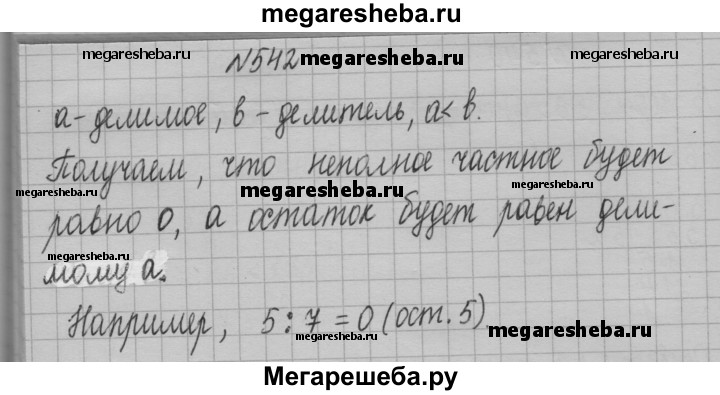 megaresheba.ru
megaresheba.ru
N542 megaresheba.ru
a - делимое, в - делитель, a< в.
Получаем, что неполное частное будет
megaresheba.ru megaresheba.ru megaresheba.ru
равно 0, а остаток будет равен дели-
мому а.
Например, 5:7=0 (ост. 5)
megaresheba.ru
Мегарешеба.ру